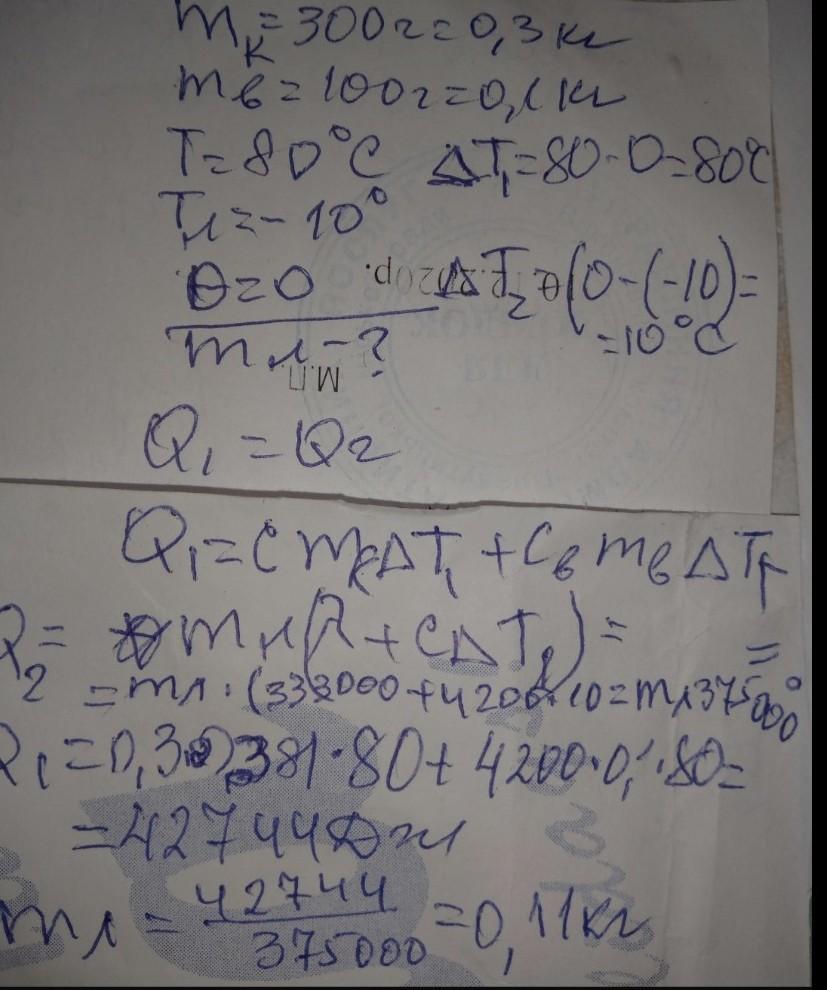 mк=300г=0,3кг
mв=100г=0,1кг
T=80°C ΔT₁=80-0=80°C
Tл=-10°
θ=0 ΔT₂=(0-(-10)=
=10°C
mл-?
М.П.
Q₁=Q₂
Q₁=cmкΔT₁+cвmвΔT₁
Q₂=mл(λ+cΔT₂)=
=mл·(333000+4200·10=mл375000
Q₁=0,3·381·80+4200·0,1·80=
=42744Дж
mл=42744/375000=0,11кг